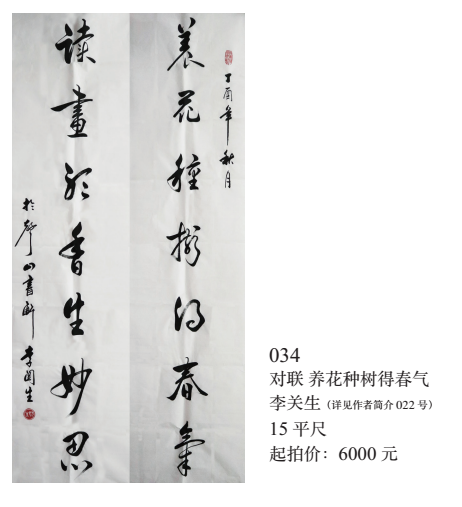 丁酉年秋月
养花種樹得春氣
读畫聽香生妙思
於山書斋 李関生
034
对联 养花种树得春气
李关生（详见作者简介 022 号）
15 平尺
起拍价：6000 元